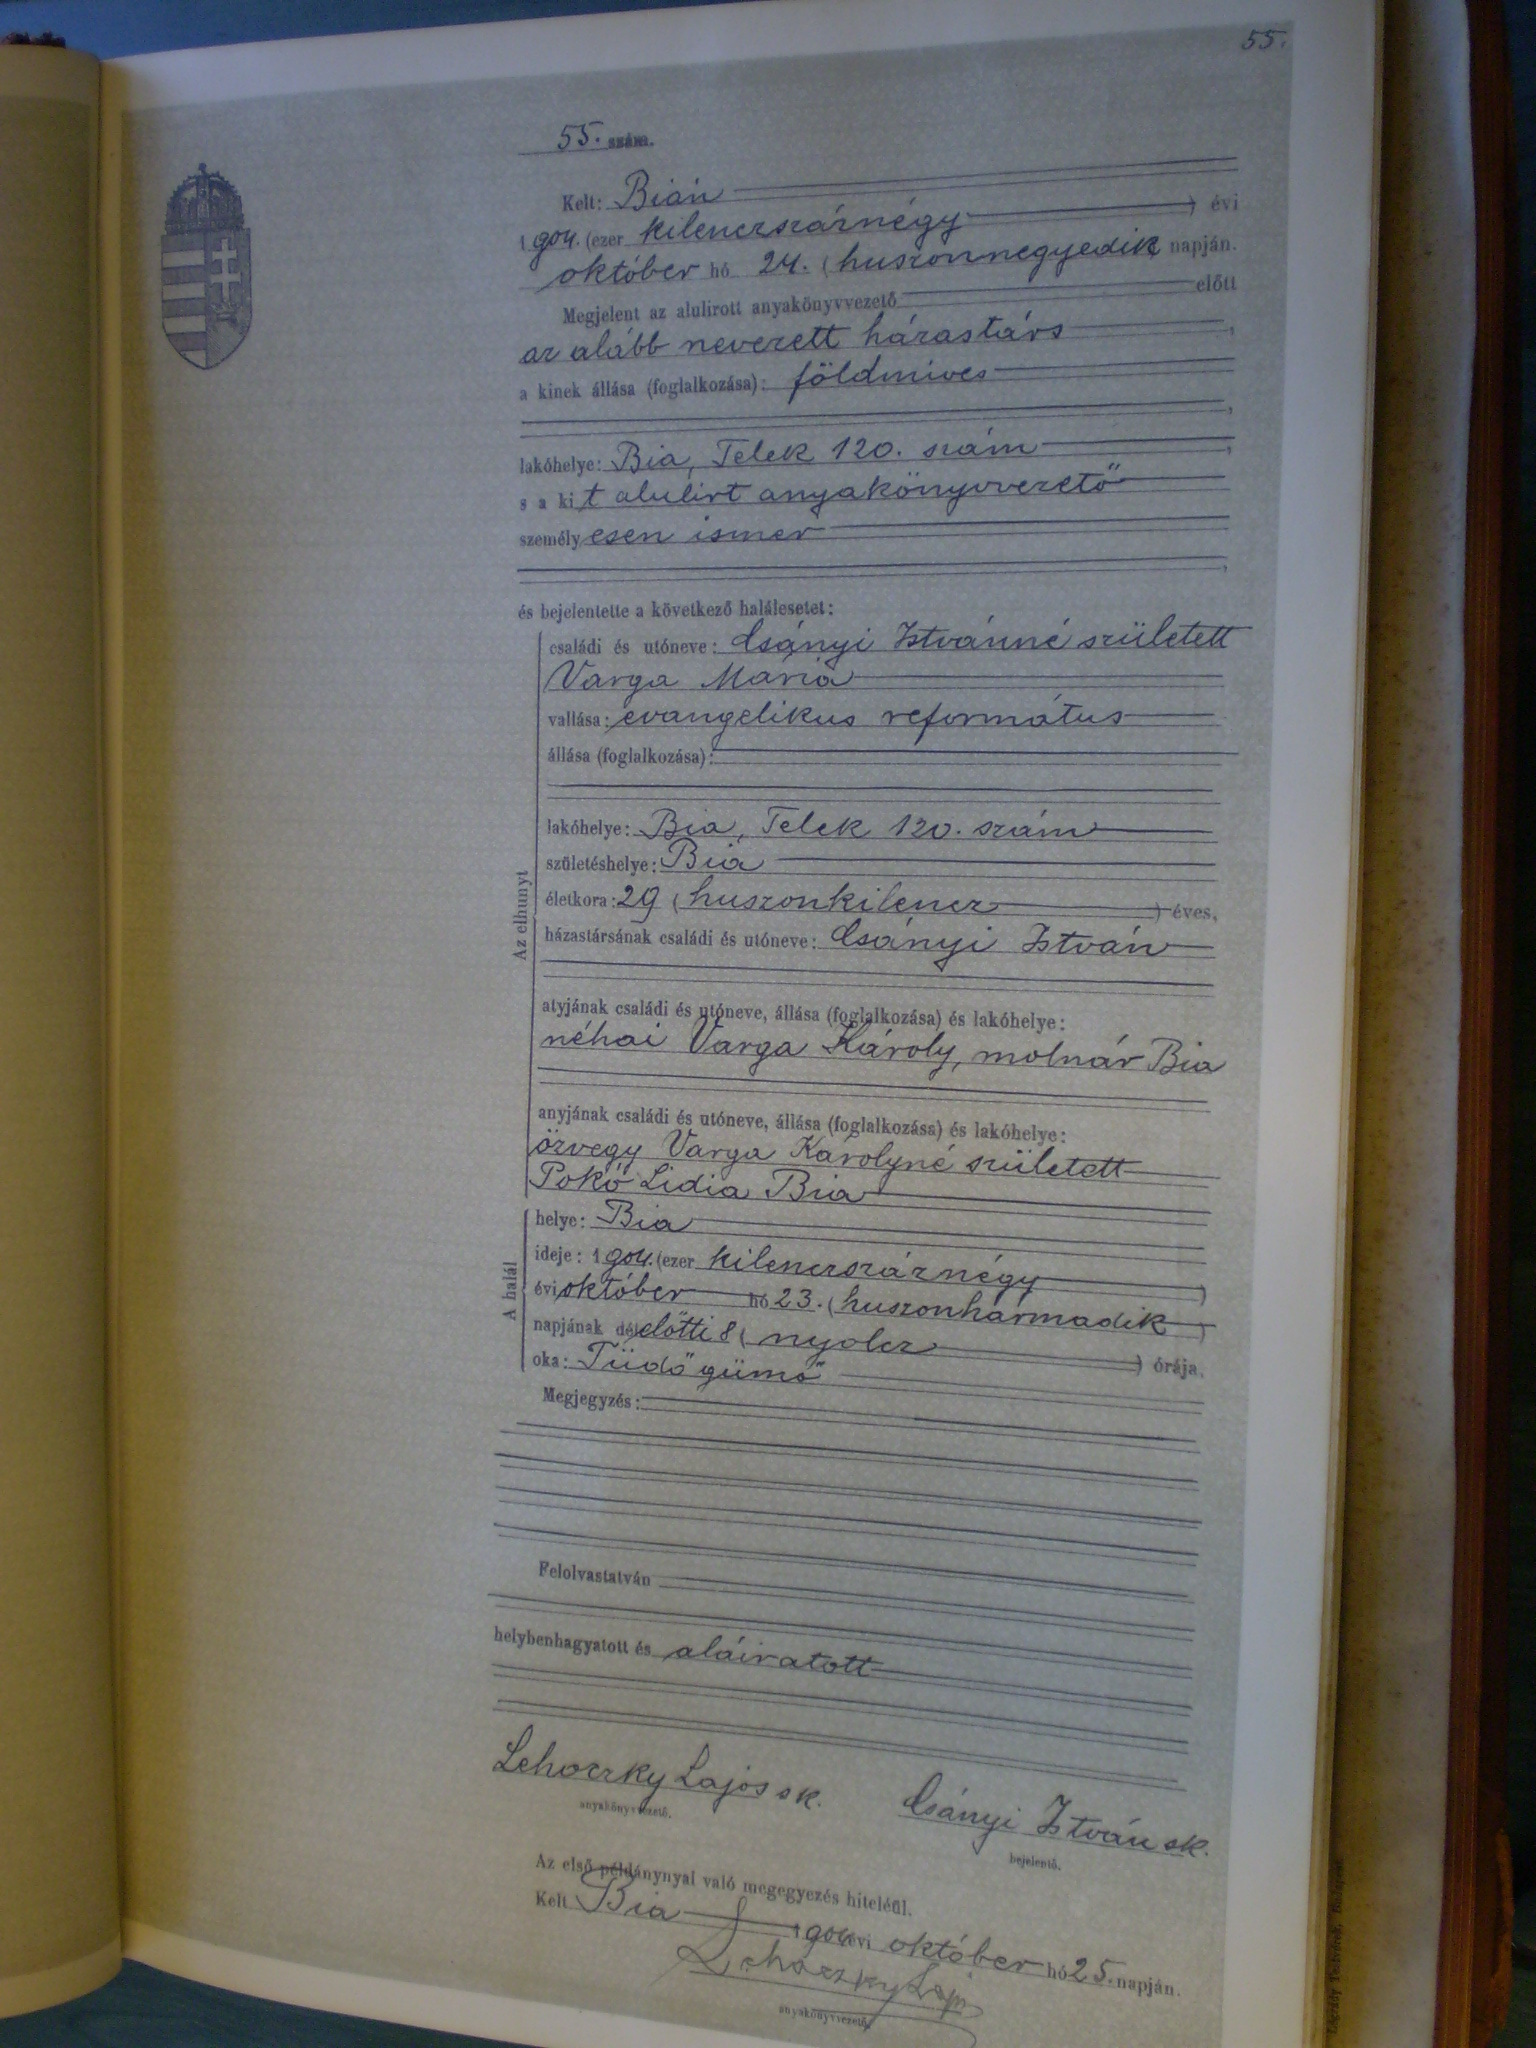 55.
55. szám.
Kelt: Bián
1904. (ezer kilenczszáznégy ) évi
október hó 24. (huszonnegyedik napján.
Megjelent az alulirott anyakönyvvezető előtt
az alább nevezett házastárs ,
a kinek állása (foglalkozása): földmives
,
lakóhelye: Bia, Telek 120. szám ,
s a kit alulirt anyakönyvvezető
személyesen ismer
,
és bejelentette a következő halálesetet:
Az elhunyt
családi és utóneve: Csányi Istvánné született
Varga Mária
vallása: evangelikus református
állása (foglalkozása):
lakóhelye: Bia, Telek 120. szám
születéshelye: Bia
életkora: 29 (huszonkilencz ) éves,
házastársának családi és utóneve: Csányi István
atyjának családi és utóneve, állása (foglalkozása) és lakóhelye:
néhai Varga Károly, molnár Bia
anyjának családi és utóneve, állása (foglalkozása) és lakóhelye:
özvegy Varga Károlyné született
Pokó Lidia Bia
A halál
helye: Bia
ideje: 1904. (ezer kilenczszáznégy )
évi október hó 23. (huszonharmadik )
napjának délelőtti 8 (nyolcz ) órája,
oka: Tüdőgümő
Megjegyzés:
Felolvastatván
helybenhagyatott és aláiratott
Lehoczky Lajos sk. Csányi István sk.
anyakönyvvezető. bejelentő.
Az első példánynyal való megegyezés hiteléül.
Kelt Bia 1904 évi október hó 25. napján.
Lehoczky Lajos
anyakönyvvezető.